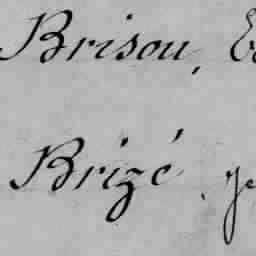 Brisou,
Brizé